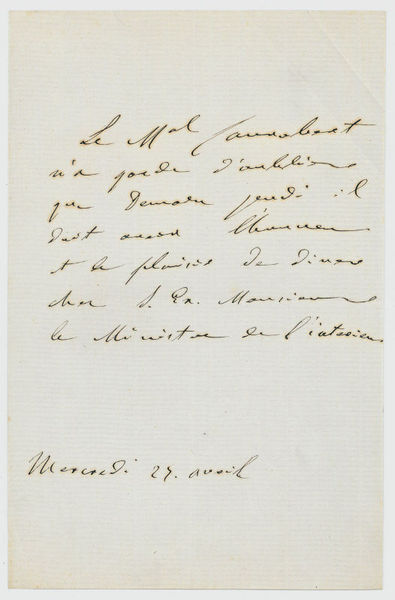 Le Mal Canrobert
n'a garde d'oublier
que Demain jeudi il
doit avoir l'honneur
et le plaisir de diner
chez S. Ex. Monsieur
le Ministre de l'intérieur
Mercredi 27. avril